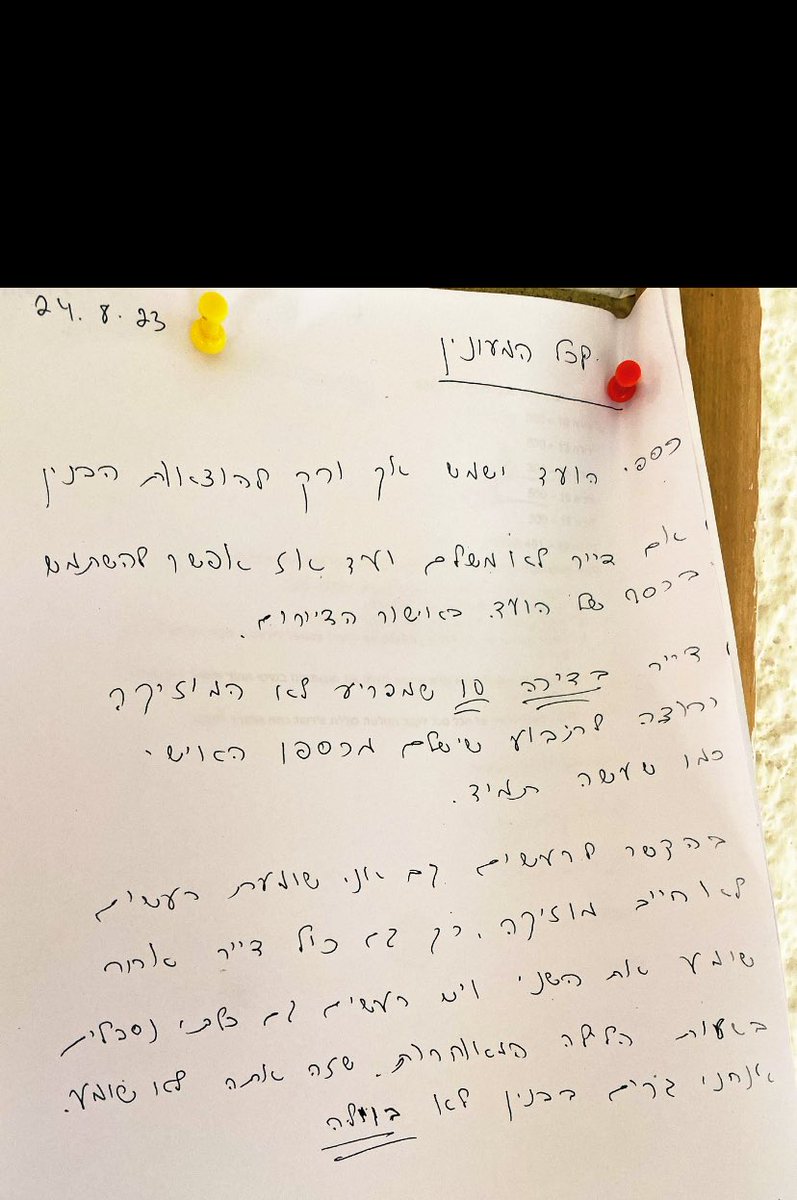 24.8.23
לכל המעונין
כספי הועד ישמש אך ורק להוצאות הבנין
אם דייר לא משלם ועד אז אפשר להשתמש
בכסף של הועד. באישור הדיירים.
דייר בדירה 10 שמפריע לו המוזיקה
ורוצה לתבוע שישלם מכספו האישי
כמו שעשה תמיד.
בהקשר לרעשים גם אני שומעת רעשים
לאו חייב מוזיקה, כך גם כול דייר אחד
שומע את השני ויש רעשים גם בלתי נסבלים
בשעות הלילה המאוחרות. שזה אתה לא שומע.
אנחנו גרים בבנין לא בוילה